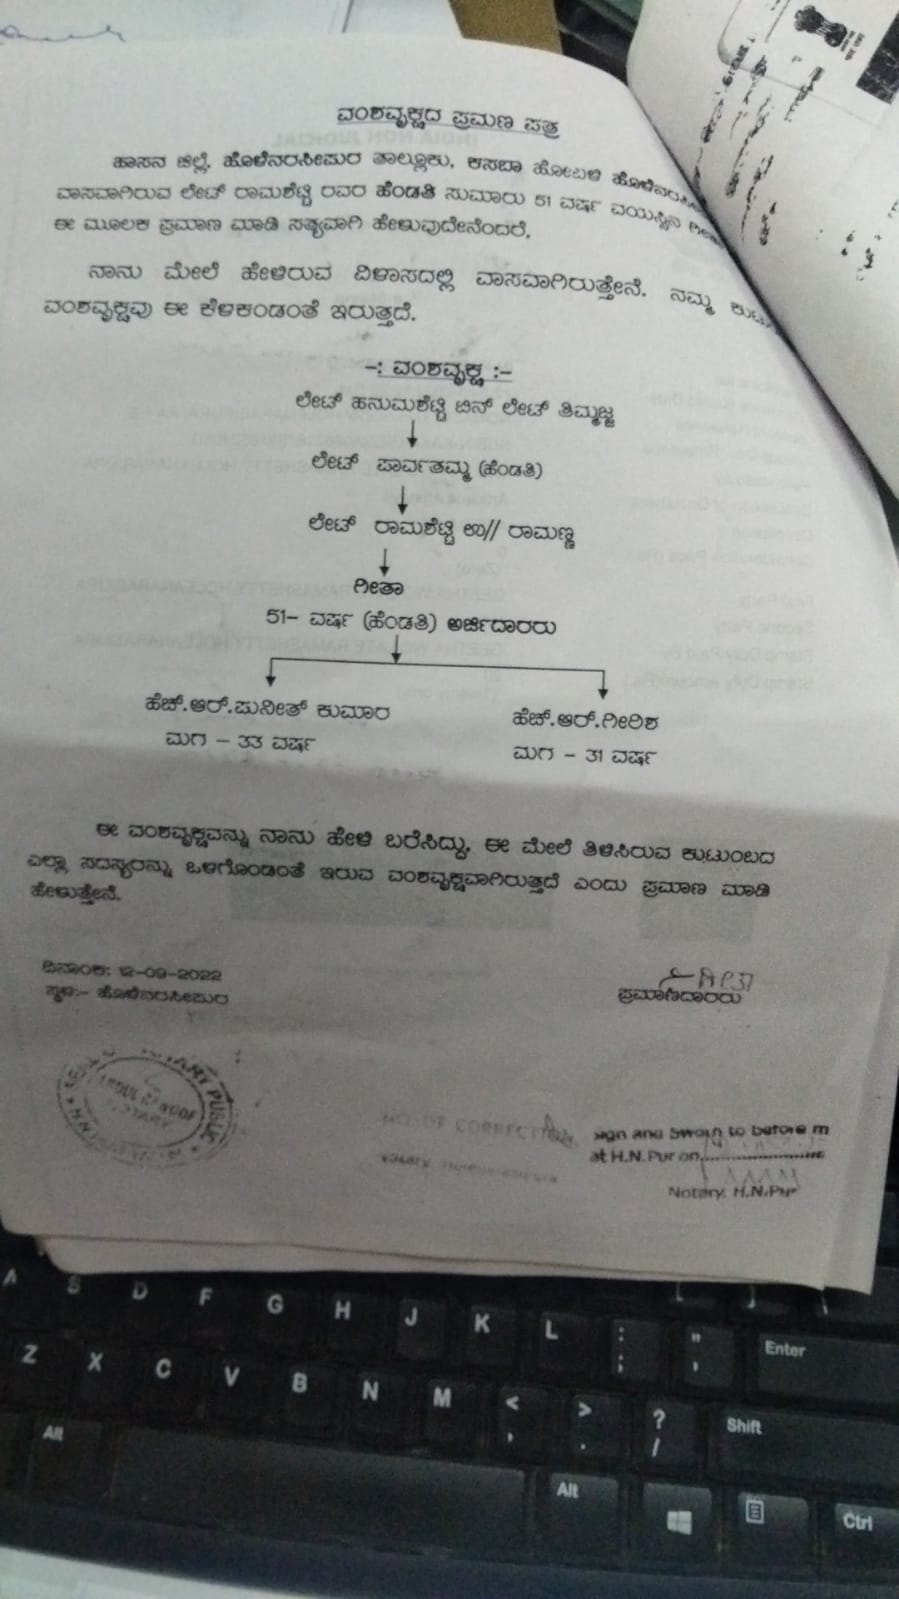 ವಂಶವೃಕ್ಷದ ಪ್ರಮಣ ಪತ್ರ
ಹಾಸನ ಜಿಲ್ಲೆ, ಹೊಳೆನರಸೀಪುರ ತಾಲ್ಲೂಕು, ಕಸಬಾ ಹೋಬಳಿ
ವಾಸವಾಗಿರುವ ಲೇಟ್ ರಾಮಶೆಟ್ಟಿ ರವರ ಹೆಂಡತಿ ಸುಮಾರು 51 ವರ್ಷ ವಯಸ್ಸಿನ
ಈ ಮೂಲಕ ಪ್ರಮಾಣ ಮಾಡಿ ಸತ್ಯವಾಗಿ ಹೇಳುವುದೇನೆಂದರೆ,
ನಾನು ಮೇಲೆ ಹೇಳಿರುವ ವಿಳಾಸದಲ್ಲಿ ವಾಸವಾಗಿರುತ್ತೇನೆ. ನಮ್ಮ
ವಂಶವೃಕ್ಷವು ಈ ಕೆಳಕಂಡಂತೆ ಇರುತ್ತದೆ.
-: ವಂಶವೃಕ್ಷ :-
ಲೇಟ್ ಹನುಮಶೆಟ್ಟಿ ಬಿನ್ ಲೇಟ್ ತಿಮ್ಮಜ್ಜ
ಲೇಟ್ ಪಾರ್ವತಮ್ಮ (ಹೆಂಡತಿ)
ಲೇಟ್ ರಾಮಶೆಟ್ಟಿ ಉ// ರಾಮಣ್ಣ
ಗೀತಾ
51- ವರ್ಷ (ಹೆಂಡತಿ) ಅರ್ಜಿದಾರರು
ಹೆಚ್.ಆರ್.ಪುನೀತ್ ಕುಮಾರ ಹೆಚ್.ಆರ್.ಗೀರಿಶ
ಮಗ - 33 ವರ್ಷ ಮಗ - 31 ವರ್ಷ
ಈ ವಂಶವೃಕ್ಷವನ್ನು ನಾನು ಹೇಳಿ ಬರೆಸಿದ್ದು, ಈ ಮೇಲೆ ತಿಳಿಸಿರುವ ಕುಟುಂಬದ
ಎಲ್ಲಾ ಸದಸ್ಯರನ್ನು ಒಳಗೊಂಡಂತೆ ಇರುವ ವಂಶವೃಕ್ಷವಾಗಿರುತ್ತದೆ ಎಂದು ಪ್ರಮಾಣ ಮಾಡಿ
ಹೇಳುತ್ತೇನೆ.
ದಿನಾಂಕ: 12-09-2022
ಸ್ಥಳ:- ಹೊಳೆನರಸೀಪುರ
ಪ್ರಮಾಣಿದಾರರು
NOTARY PUBLIC
NOTARY
NO. OF CORRECTION
Sign and Sworn to before m
at H.N.Pur on
Notary, H.N.Pur
A S D F G H J K L : ; " ' Enter
Z X C V B N M < , > . ? / Shift
Alt Alt Ctrl